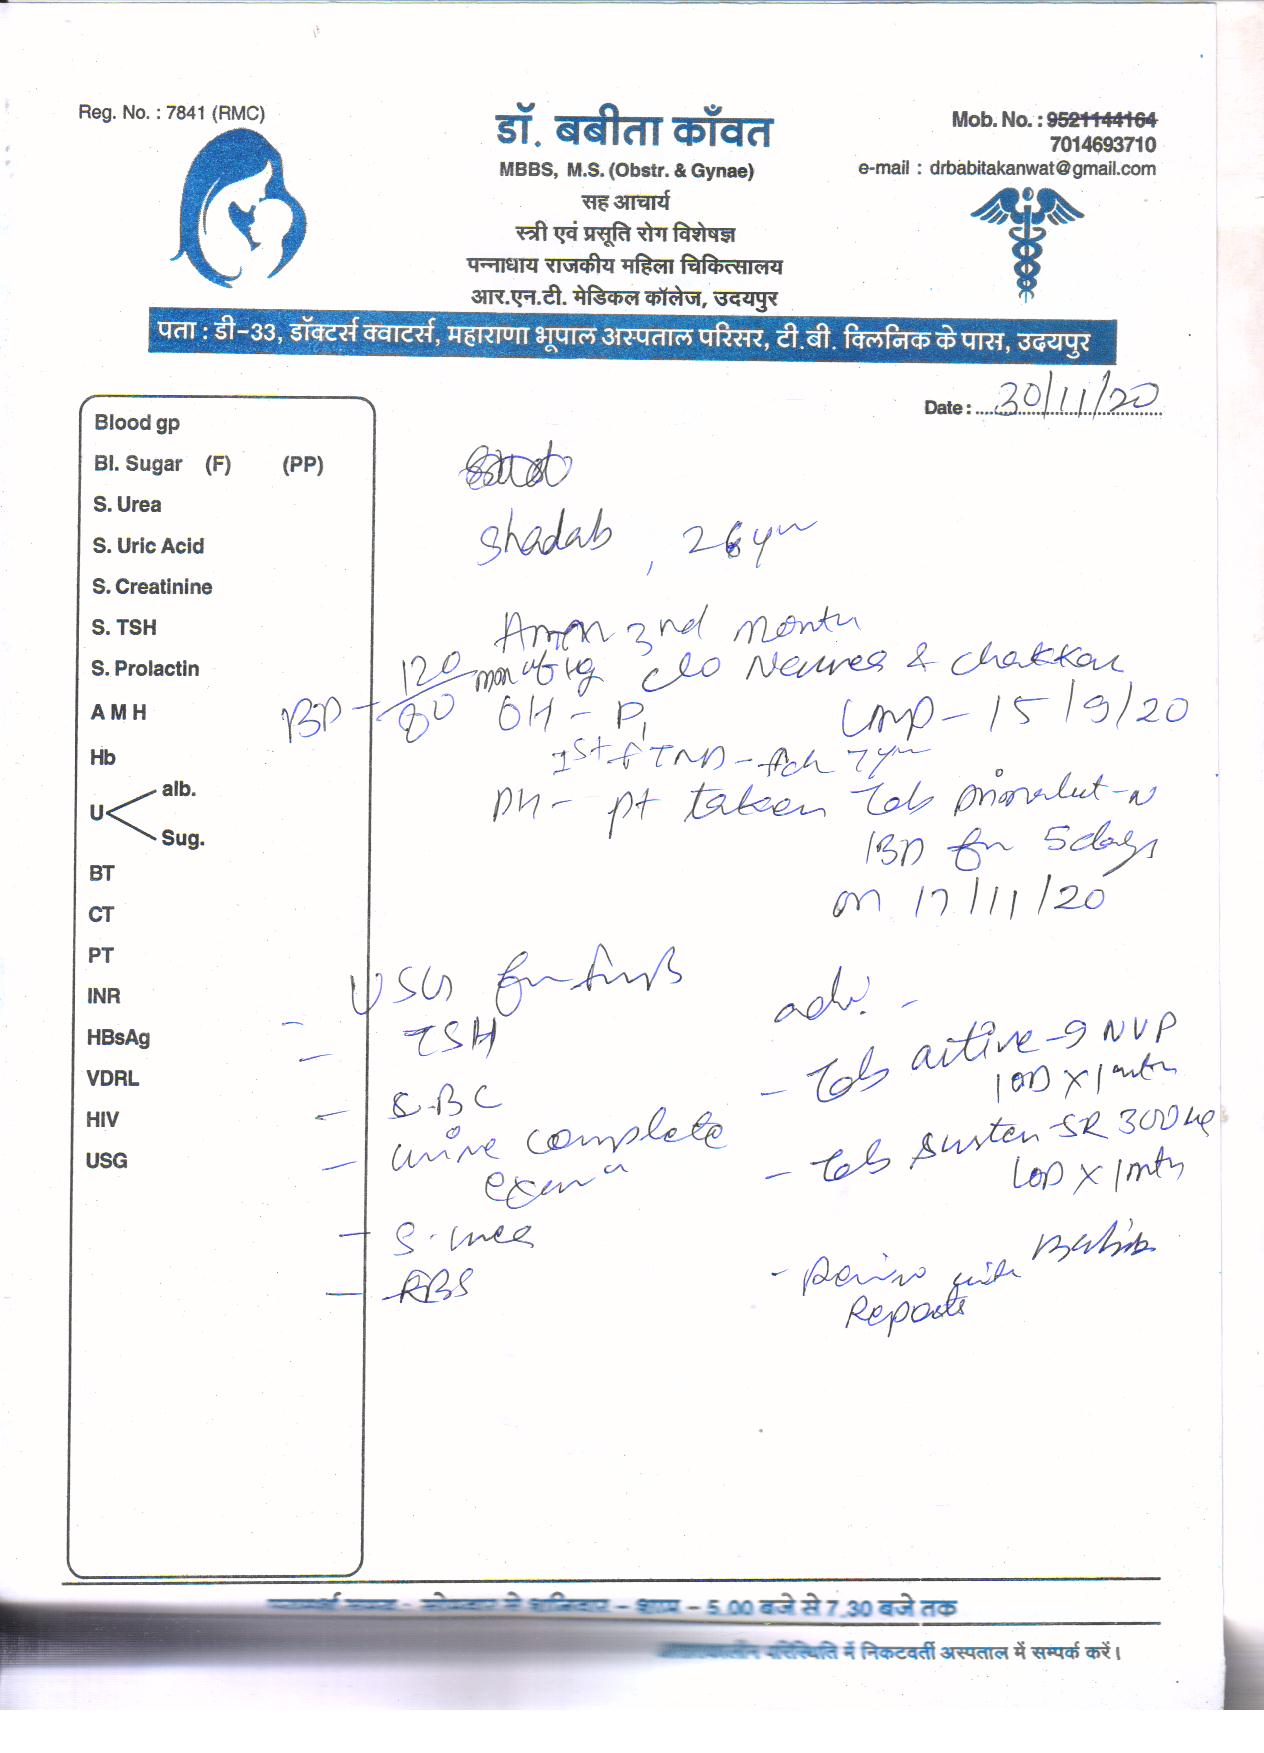 Reg. No. : 7841 (RMC)
डॉ. बबीता काँवत
MBBS, M.S. (Obstr. & Gynae)
सह आचार्य
स्त्री एवं प्रसूति रोग विशेषज्ञ
पन्नाधाय राजकीय महिला चिकित्सालय
आर.एन.टी. मेडिकल कॉलेज, उदयपुर
Mob. No. : 9521144164
7014693710
e-mail : drbabitakanwat@gmail.com
पता : डी-33, डॉक्टर्स क्वाटर्स, महाराणा भूपाल अस्पताल परिसर, टी.बी. क्लिनिक के पास, उदयपुर
Date : 30/11/20
Blood gp
Bl. Sugar (F) (PP)
S. Urea
S. Uric Acid
S. Creatinine
S. TSH
S. Prolactin
A M H
Hb
U alb.
Sug.
BT
CT
PT
INR
HBsAg
VDRL
HIV
USG
Shadab, 26 yrs
2nd month
BP - 120/80 mm of Hg
c/o & chakkar
OH - P1 LMP - 15/9/20
1st FTND - 7 yrs
PH - pt taken Tab primolut-N
1BD for 5 days
on 17/11/20
USG for
- TSH
- CBC
- urine complete
- S. urea
- RBS
adv. -
- Tab active-9 NVP
1OD x 1 mth
- Tab Susten SR 300 mg
1OD x 1 mth
- Review with
Reports
5.00 बजे से 7.30 बजे तक
परिस्थिति में निकटवर्ती अस्पताल में सम्पर्क करें।